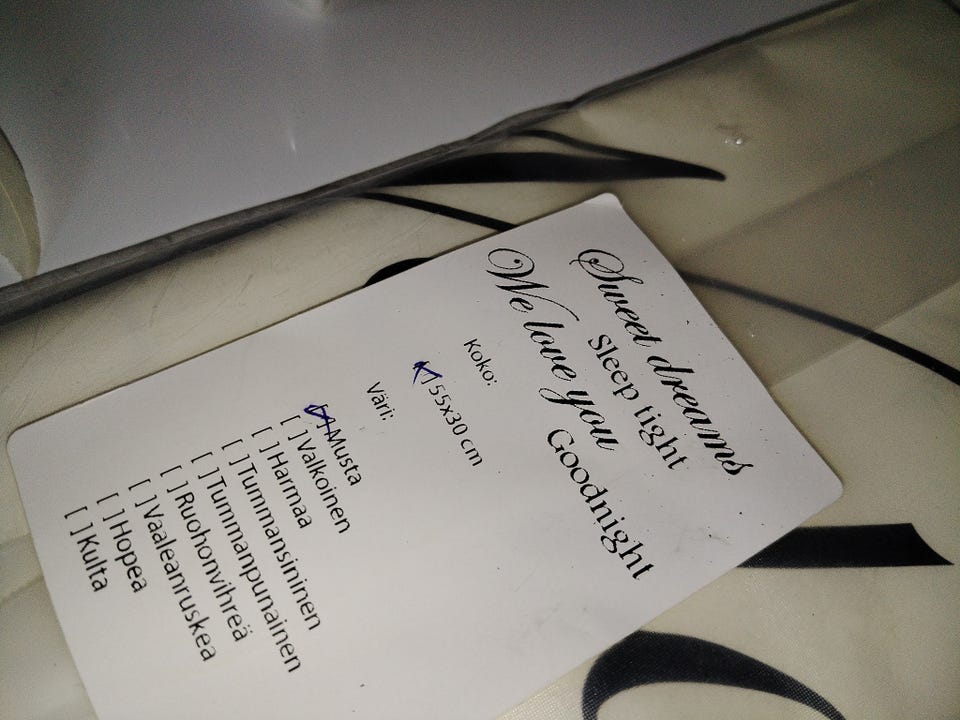 Sweet dreams
Sleep tight
We love you
Goodnight
Koko:
[ ] 55x30 cm
Väri:
[ ] Musta
[ ] Valkoinen
[ ] Harmaa
[ ] Tummansininen
[ ] Tummanpunainen
[ ] Ruohonvihreä
[ ] Vaaleanruskea
[ ] Hopea
[ ] Kulta